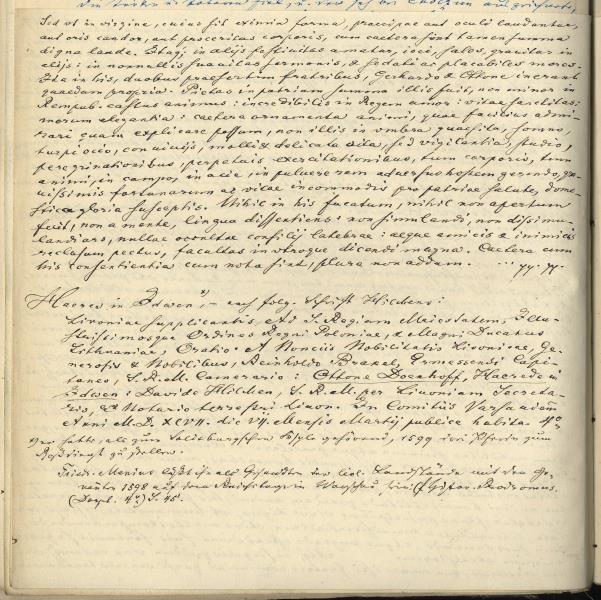 Sed ut in virgine, cuius sit eximia forma, praecipue aut oculi laudantur,
aut oris candor, aut proceritas corporis, cum caetera sint tamen summa
digna laude. Itaq; in alijs festivitas amatur, ioci, sales, gravitas in
alijs: in nonnullis suavitas sermonis, & sedati ac placabiles mores.
Ita in his, duobus praesertim fratribus, Gerhardo & Ottone inerant
quaedam propria. Pietas in patriam summa illis fuit, non minor in
Rempub. castus animus: incredibilis in Regem amor: vitae sanctitas:
morum elegantia: caetera ornamenta animi, quae facilius admi-
rari quam explicare possum, non illis in umbra quaesita, somno,
turpi ocio, conviviis, molli & delicata vita, sed vigilantia, studio,
peregrinationibus, perpetuis exercitationibus, tum corporis, tum
animi, in campo, in acie, in pulvere rem adversus hostem gerendo,
fortunarum ac vitae incommodis pro patriae salute, dome-
stica gloria susceptis. Nihil in his fucatum, nihil non apertum
fuit, non a mente, lingua dissentiens: non simulandi, non dissimu-
landi ars, nullae occultae consilij latebrae: aeque amicis & inimicis
reclusum pectus, facultas in utroque dicendi magna. Caetera cum
his consentientia cum nota sint, plura non addam.
Haeres in Idwen – nach folg. Schrift Hilchens:
Livoniae supplicantis Ad S. Regiam Maiestatem, Illu-
strissimosque Ordines Regni Poloniae, & Magni Ducatus
Lithuaniae, Oratio. A Nunciis Nobilitatis Livonicae, Ge-
nerosis & Nobilibus, Reinholdo Brakel, Ermessensi Capi-
taneo, S.R.M. Camerario: Ottone Doenhoff, Haerede in
Idwen: Davide Hilchen, S. R. M. per Livoniam Secreta-
rio, & Notario terrestri In Comitiis
Anni M.D.XCVII. die VII. Mensis Martij publice habita. 4o
hatte, als zum gehörend, 1599 zum
Rossdienst zu stellen.
Fried. Menius als Gesandten der livl. Landstände mit dem
1598 auf dem Reichstage in Warschau Prodromus.
(Dorpt. 4o) S. 45.